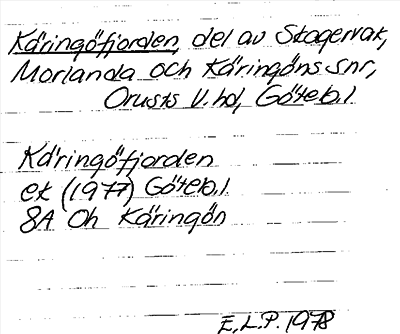 Käringöfjorden, del av Skagerrak,
Morlanda och Käringöns snr,
Orusts V. hd, Göteb. l.
Käringöfjorden
ek (1977) Göteb. l.
8A 0h Käringön
E.L.P. 1978